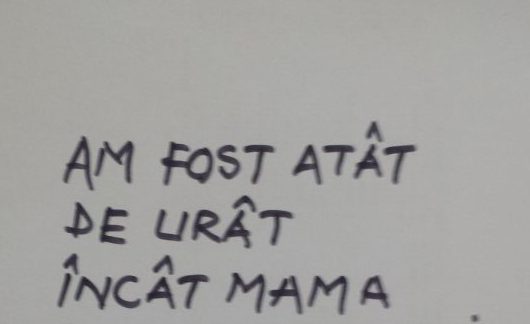 AM FOST ATÂT
DE URÂT
ÎNCÂT MAMA